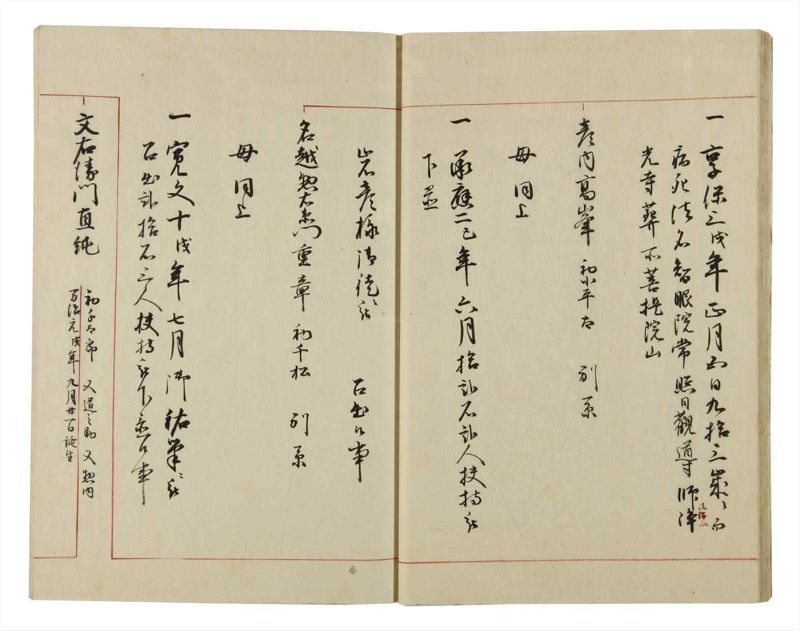 一 享保三戌年 正月四日九拾三歳ニ而
病死法名智眼院常照日觀導師浄
光寺葬不菩提院山
彦内高峯 初小平太 別系
母同上
一 承應二巳年 六月拾弐石弐人扶持被
下置
岩彦様御徒被
召出候事
名越惣右衛門重章 初千松 別系
母同上
一 寛文十戌年七月御祐筆ニ被
召出弐拾石三人扶持被下置候事
文右衛門直純
初千太郎 又道之助 又惣内
万治元戌年九月廿日誕生